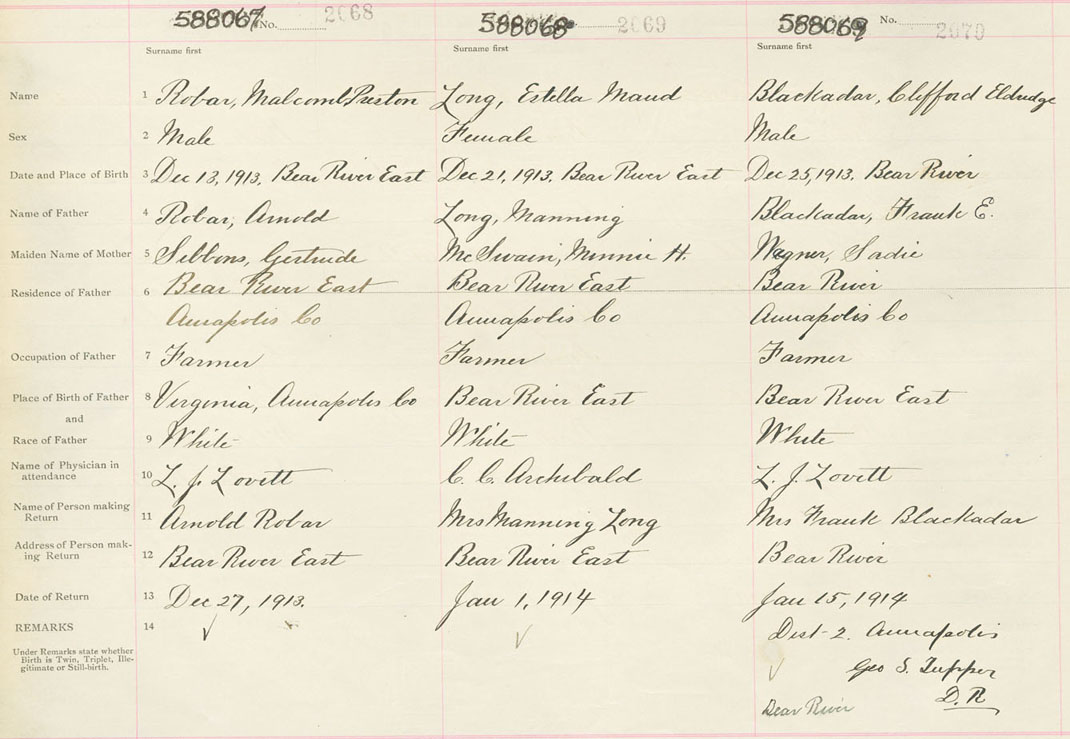 588067 No. 2068 588068 2069 588069 No. 2070
Surname first Surname first Surname first
Name 1 Robar, Malcomb Preston Long, Estella Maud Blackadar, Clifford Eldredge
Sex 2 Male Female Male
Date and Place of Birth 3 Dec 13, 1913. Bear River East Dec 21, 1913. Bear River East Dec 25, 1913. Bear River
Name of Father 4 Robar, Arnold Long, Manning Blackadar, Frank E.
Maiden Name of Mother 5 Sibbons, Gertrude McSwain, Minnie H. Wagner, Sadie
Residence of Father 6 Bear River East Bear River East Bear River
Annapolis Co Annapolis Co Annapolis Co
Occupation of Father 7 Farmer Farmer Farmer
Place of Birth of Father 8 Virginia, Annapolis Co Bear River East Bear River East
and
Race of Father 9 White White White
Name of Physician in
attendance 10 L. J. Lovett C. C. Archibald L. J. Lovett
Name of Person making
Return 11 Arnold Robar Mrs Manning Long Mrs Frank Blackadar
Address of Person mak-
ing Return 12 Bear River East Bear River East Bear River
Date of Return 13 Dec 27, 1913. Jan 1, 1914 Jan 15, 1914
REMARKS 14 ✓ Dist-2. Annapolis
Under Remarks state whether
Birth is Twin, Triplet, Ille-
gitimate or Still-birth. ✓ ✓ Geo S. Tupper
D. R
Bear River